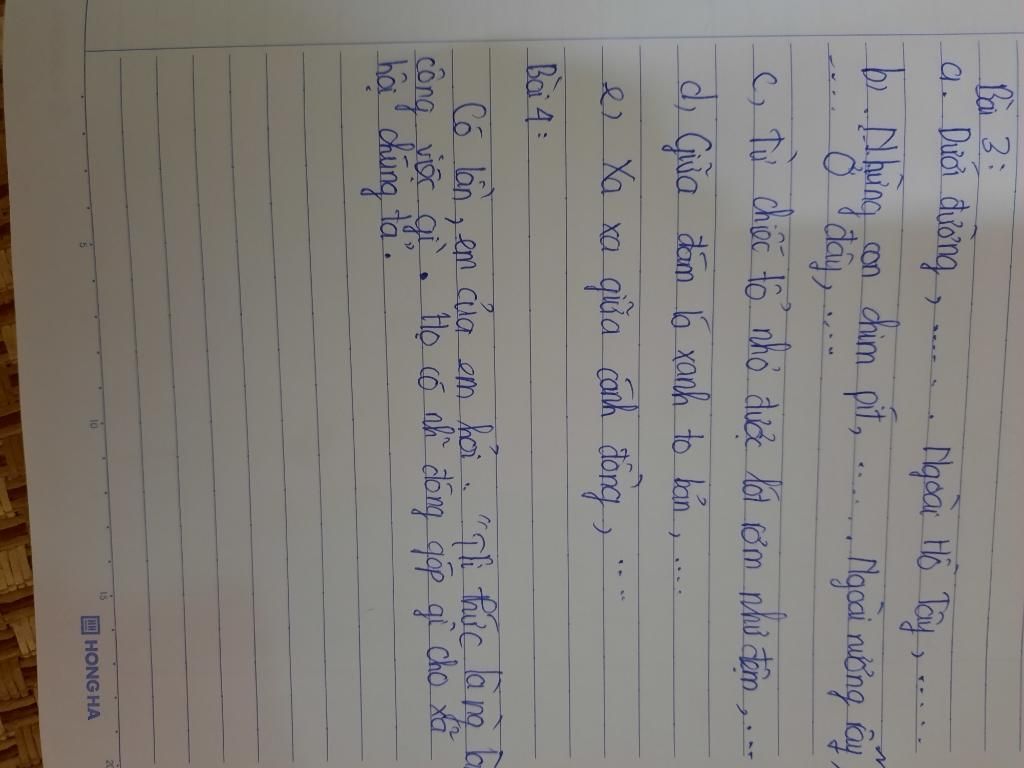 Bài 3:
a. Dưới đường, ...... Ngoài Hồ Tây, .....
b). Những con chim pít, ...... Ngoài nương rẫy,
.... Ở đây, ....
c, Từ chiếc tổ nhỏ được lót rơm như đệm, ...
d, Giữa đám lá xanh to bản, ....
e, Xa xa giữa cánh đồng, ...
Bài 4:
Có lần, em của em hỏi: "Trí thức là
công việc gì. Họ có đóng góp gì cho xã
hội chúng ta.
HONG HA
5
10
15
20